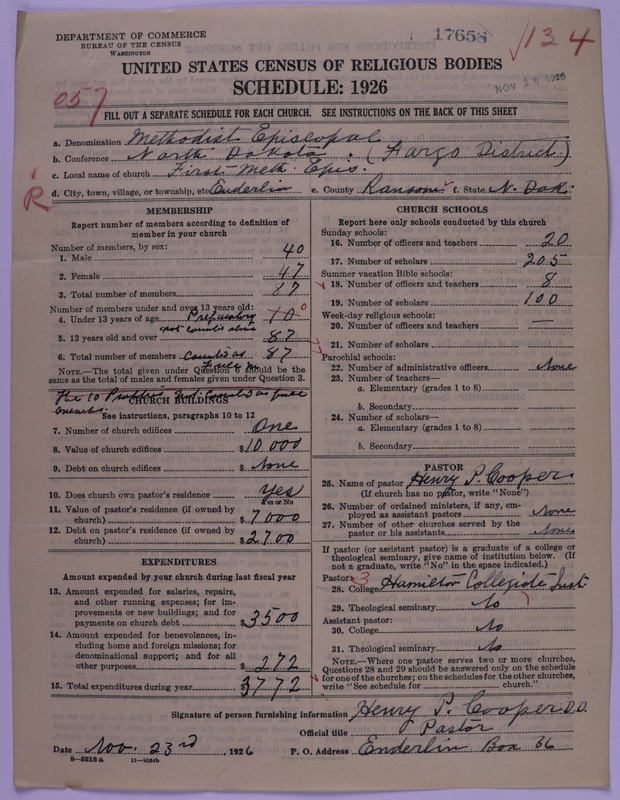 DEPARTMENT OF COMMERCE
BUREAU OF THE CENSUS
WASHINGTON
17658
134
UNITED STATES CENSUS OF RELIGIOUS BODIES
NOV 26 1926
SCHEDULE: 1926
057
FILL OUT A SEPARATE SCHEDULE FOR EACH CHURCH. SEE INSTRUCTIONS ON THE BACK OF THIS SHEET
a. Denomination Methodist Episcopal
b. Conference North Dakota. (Fargo District)
c. Local name of church First Meth. Epis.
R
d. City, town, village, or township, etc. Enderlin e. County Ransom f. State N. Dak.
MEMBERSHIP
Report number of members according to definition of
member in your church
Number of members, by sex:
1. Male 40
2. Female 47
3. Total number of members 87
Number of members under and over 13 years old:
4. Under 13 years of age Preparatory 10
not counted above
5. 13 years old and over 87
6. Total number of members Counted as 87
NOTE.—The total given under Question 6 should be the
same as the total of males and females given under Question 3.
The 10 not counted as full
members.
CHURCH BUILDINGS
See instructions, paragraphs 10 to 12
7. Number of church edifices One
8. Value of church edifices $10 000
9. Debt on church edifices $ None
10. Does church own pastor's residence Yes
Yes or No
11. Value of pastor's residence (if owned by
church) $ 7000
12. Debt on pastor's residence (if owned by
church) $ 2700
EXPENDITURES
Amount expended by your church during last fiscal year
13. Amount expended for salaries, repairs,
and other running expenses; for im-
provements or new buildings; and for
payments on church debt $3500
14. Amount expended for benevolences, in-
cluding home and foreign missions; for
denominational support; and for all
other purposes $ 272
15. Total expenditures during year $3772
CHURCH SCHOOLS
Report here only schools conducted by this church
Sunday schools:
16. Number of officers and teachers 20
17. Number of scholars 205
Summer vacation Bible schools:
18. Number of officers and teachers 8
19. Number of scholars 100
Week-day religious schools:
20. Number of officers and teachers —
21. Number of scholars
Parochial schools:
22. Number of administrative officers None
23. Number of teachers—
a. Elementary (grades 1 to 8)
b. Secondary
24. Number of scholars—
a. Elementary (grades 1 to 8)
b. Secondary
PASTOR
25. Name of pastor Henry P. Cooper
(If church has no pastor, write "None")
26. Number of ordained ministers, if any, em-
ployed as assistant pastors None
27. Number of other churches served by the
pastor or his assistants None
If pastor (or assistant pastor) is a graduate of a college or
theological seminary, give name of institution below. (If
not a graduate, write "No" in the space indicated.)
Pastor: 3
28. College Hamilton Collegiate Inst.
29. Theological seminary No
Assistant pastor:
30. College No
31. Theological seminary No
NOTE.—Where one pastor serves two or more churches,
Questions 28 and 29 should be answered only on the schedule
for one of the churches; on the schedules for the other churches,
write "See schedule for church."
Signature of person furnishing information Henry P. Cooper D.D.
Official title Pastor
Date Nov. 23rd, 1926 P. O. Address Enderlin Box 36
8—5518 a 11—9264b